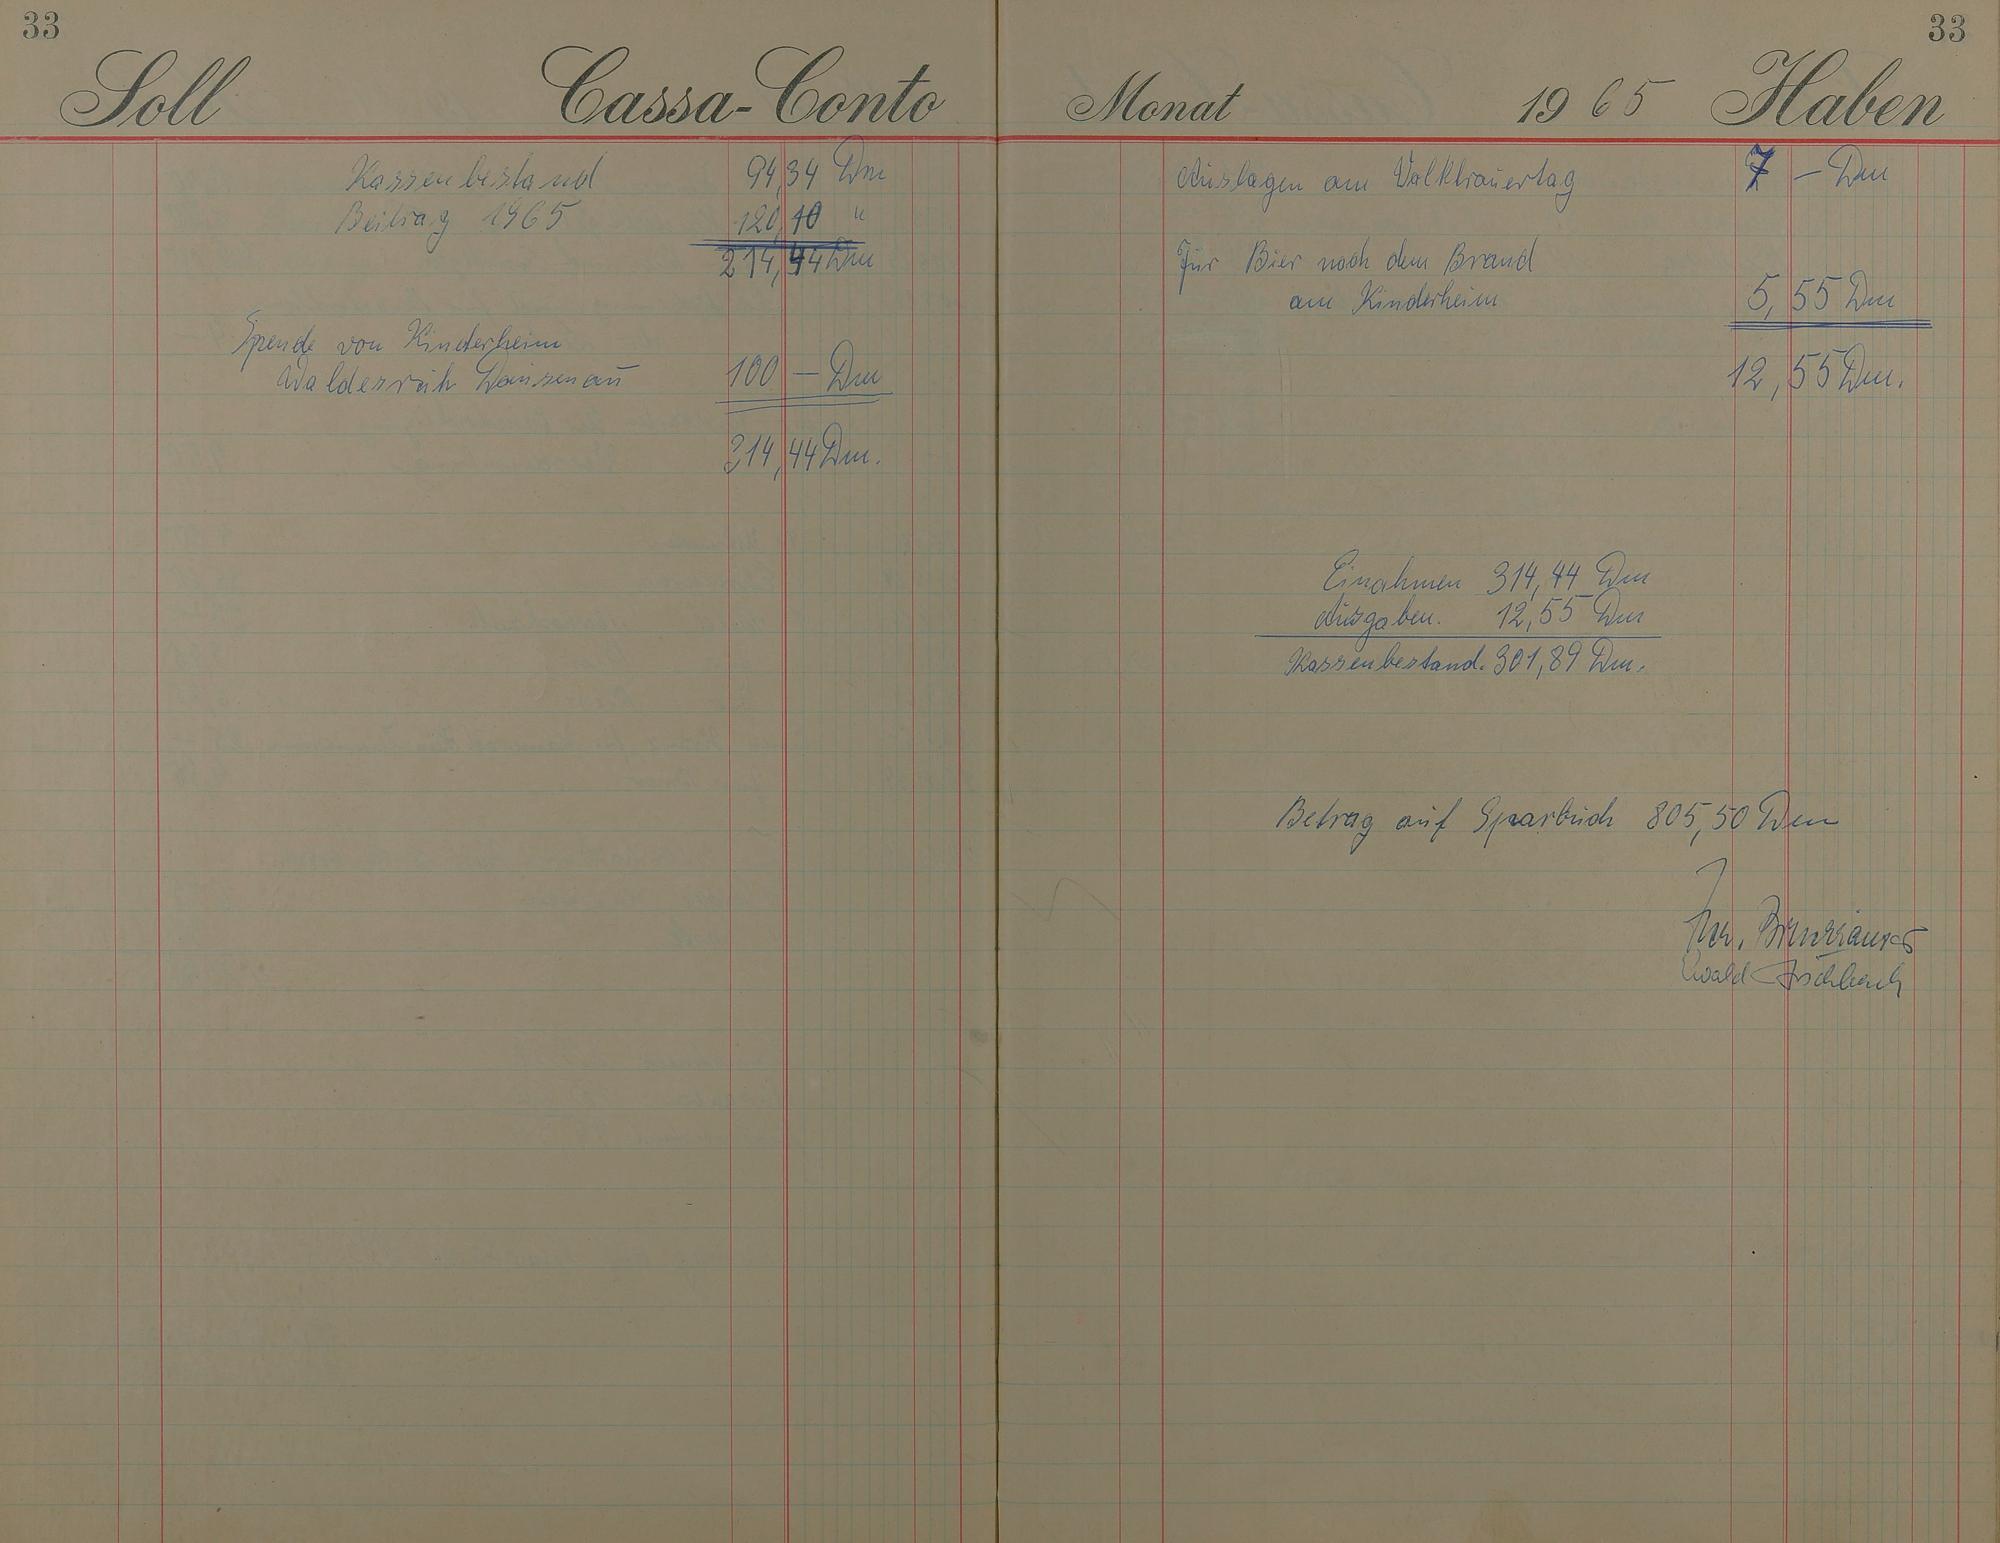 33
Soll Cassa-Conto
Kassenbestand 94,34 Dm
Beitrag 1965 120,10 "
214,44 Dm
Spende von Kinderheim
100 — Dm
314,44 Dm.
33
Monat 1965 Haben
Auslagen am Volktrauertag 7 — Dm
Für Bier nach dem Brand
am Kinderheim 5,55 Dm
12,55 Dm.
Einahmen 314,44 Dm
Ausgaben. 12,55 Dm
Kassenbestand. 301,89 Dm.
Betrag auf Sparbuch 805,50 Dm
Ewald Fischbach